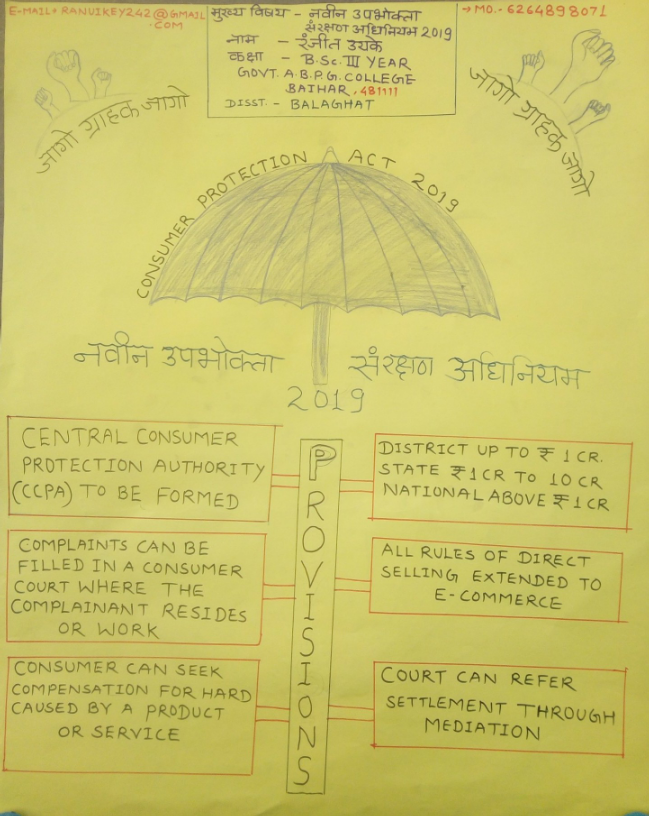 E-MAIL→ RANUIKEY242@GMAIL
.COM
मुख्य विषय - नवीन उपभोक्ता
संरक्षण अधिनियम 2019
नाम - रंजीत उयके
कक्षा - B.Sc. III YEAR
GOVT. A.B.P.G. COLLEGE
BAIHAR, 481111
DISST. - BALAGHAT
→ MO.- 6264898071
जागो ग्राहक जागो
जागो ग्राहक जागो
CONSUMER PROTECTION ACT 2019
नवीन उपभोक्ता संरक्षण अधिनियम
2019
CENTRAL CONSUMER
PROTECTION AUTHORITY
(CCPA) TO BE FORMED
COMPLAINTS CAN BE
FILLED IN A CONSUMER
COURT WHERE THE
COMPLAINANT RESIDES
OR WORK
CONSUMER CAN SEEK
COMPENSATION FOR HARD
CAUSED BY A PRODUCT
OR SERVICE
PROVISIONS
DISTRICT UP TO ₹ 1 CR.
STATE ₹1CR TO 10 CR
NATIONAL ABOVE ₹1CR
ALL RULES OF DIRECT
SELLING EXTENDED TO
E-COMMERCE
COURT CAN REFER
SETTLEMENT THROUGH
MEDIATION